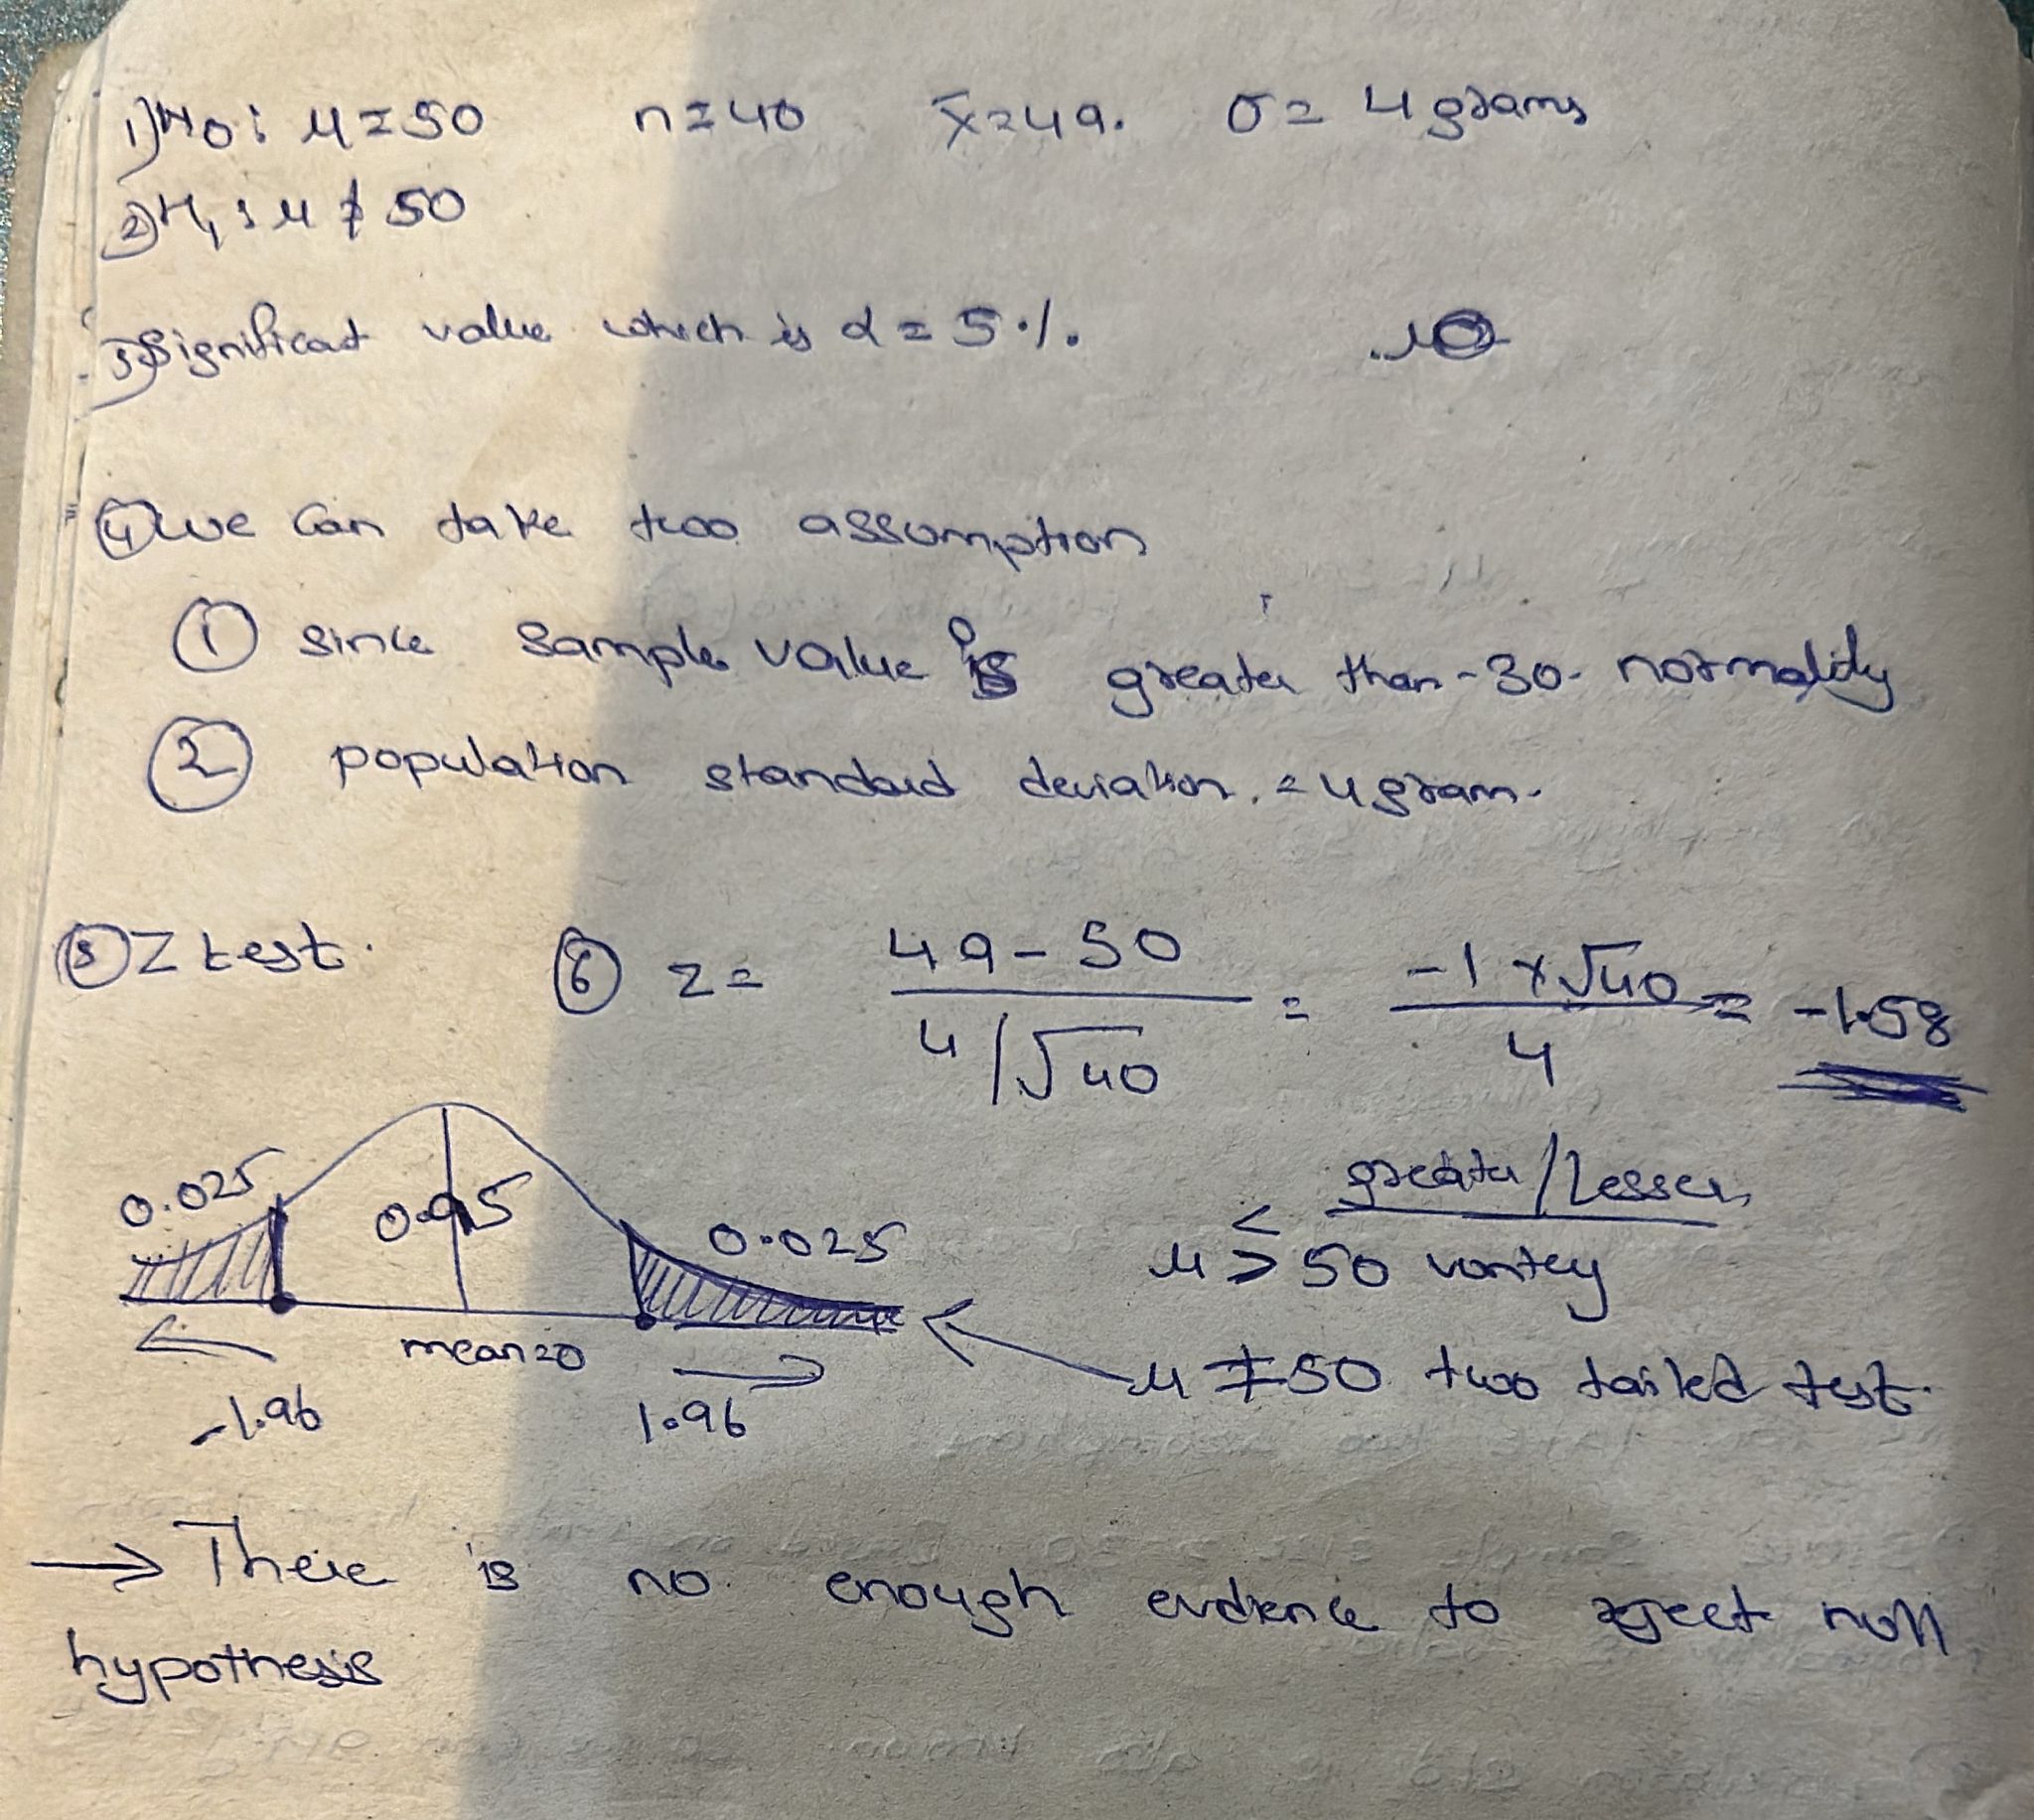 1) H₀ : μ = 50 n = 40 x̄ = 49. σ = 4 grams
2) H₁ : μ ≠ 50
3) Significant value which is α = 5 %.
④ we can take two assumption
① since sample value is greater than - 30 - normality
② population standard deviation. = 4 gram.
⑤ Z test. ⑥ z = (49 - 50) / (4/√40) = (-1 × √40) / 4 = -1.58
0.025 0.95 0.025
greater / Lesser
μ ≶ 50
mean = 0
μ ≠ 50 two tailed test.
-1.96 1.96
→ There is no enough evidence to reject null
hypothesis